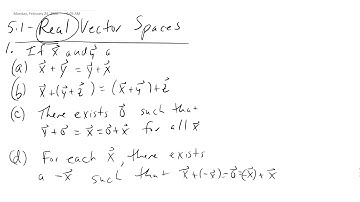 5.1 - Real Vector Spaces
1. If x⃗ and y⃗ a
(a) x⃗ + y⃗ = y⃗ + x⃗
(b) x⃗ + (y⃗ + z⃗) = (x⃗ + y⃗) + z⃗
(c) There exists 0⃗ such that
x⃗ + 0⃗ = x⃗ = 0⃗ + x⃗ for all x⃗
(d) For each x⃗, there exists
a -x⃗ such that x⃗ + (-x⃗) = 0⃗ = (-x⃗) + x⃗